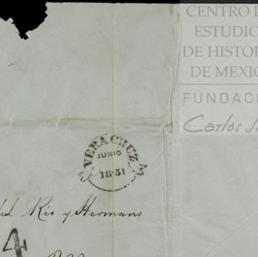 CENTRO D
ESTUDIO
DE HISTOR
DE MEXIC
FUNDAC
Carlos S
VERA CRUZ
JUNIO
18-51
del Rio y Hermano
4